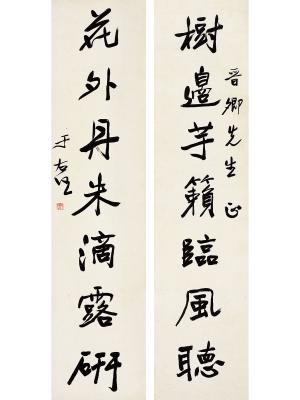 樹邊芋籟臨風聽
晉卿先生正
花外丹朱滴露研
于右任